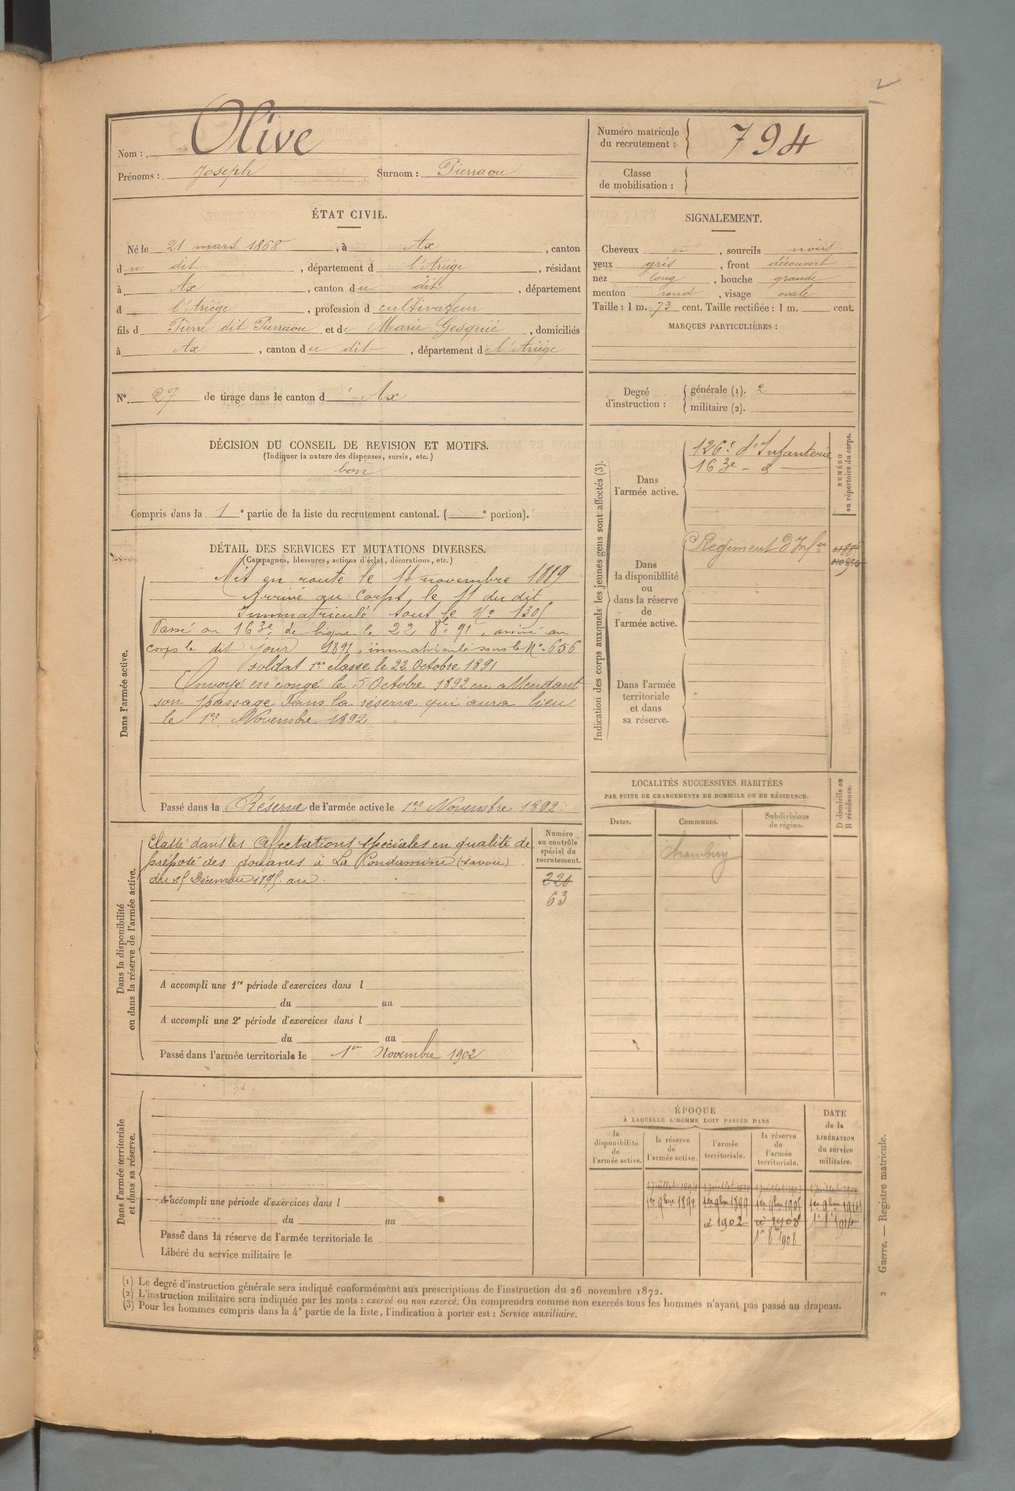 Nom : Olive
Prénoms : Joseph Surnom : Pierraou
Numéro matricule du recrutement : 794
Classe de mobilisation :
ÉTAT CIVIL.
Né le 21 mars 1868, à Ax, canton
du dit, département d l'Ariège, résidant
à Ax, canton du dit, département
d l'Ariège, profession d cultivateur
fils d Pierre dit Pierraou et de Marie Gesquié, domiciliés
à Ax, canton du dit, département d l'Ariège
SIGNALEMENT.
Cheveux et, sourcils noirs
yeux gris, front découvert
nez long, bouche grande
menton rond, visage ovale
Taille : 1 m. 73 cent. Taille rectifiée : 1 m. cent.
MARQUES PARTICULIÈRES :
N° 27 de tirage dans le canton d'Ax
Degré d'instruction : générale (1). 2
militaire (2).
DÉCISION DU CONSEIL DE REVISION ET MOTIFS.
(Indiquer la nature des dispenses, sursis, etc.)
bon
Compris dans la 1e partie de la liste du recrutement cantonal. ( e portion).
DÉTAIL DES SERVICES ET MUTATIONS DIVERSES.
(Campagnes, blessures, actions d'éclat, décorations, etc.)
Dans l'armée active.
Mis en route le novembre 1889
Arrivé au Corps, le 11 du dit
Immatriculé sous le N°
Passé au 163e de ligne le 22 8bre 91, arrivé au
corps le dit jour 1891, immatriculé sous le N° 656
Soldat 1re classe le 22 Octobre 1891
Envoyé en congé le 5 Octobre 1892 en attendant
son passage dans la réserve qui aura lieu
le 1er Novembre 1892
Passé dans la Réserve de l'armée active le 1er Novembre 1892
Indication des corps auxquels les jeunes gens sont affectés (3).
Dans l'armée active.
126e d'Infanterie
163e - d -
NUMÉRO au répertoire du corps.
Dans la disponibilité ou dans la réserve de l'armée active.
Régiment d'Inf
Dans l'armée territoriale et dans sa réserve.
Dans la disponibilité ou dans la réserve de l'armée active.
Classé dans les affectations spéciales en qualité de
préposé des douanes à La Condamine (Savoie)
du Décembre 1895 au
Numéro au contrôle spécial du recrutement.
220
63
A accompli une 1re période d'exercices dans l
du au
A accompli une 2e période d'exercices dans l
du au
Passé dans l'armée territoriale le 1er Novembre 1902
LOCALITÉS SUCCESSIVES HABITÉES
PAR SUITE DE CHANGEMENTS DE DOMICILE OU DE RÉSIDENCE.
Dates. Communes. Subdivisions de région. D domicile ou R résidence.
Chambéry
Dans l'armée territoriale et dans sa réserve.
A accompli une période d'exercices dans l
du au
Passé dans la réserve de l'armée territoriale le
Libéré du service militaire le
ÉPOQUE
À LAQUELLE L'HOMME DOIT PASSER DANS
la disponibilité de l'armée active. la réserve de l'armée active. l'armée territoriale. la réserve de l'armée territoriale. DATE de la LIBÉRATION du service militaire.
1er 9bre 1892 1er 9bre 1899
1902 1908
(1) Le degré d'instruction générale sera indiqué conformément aux prescriptions de l'instruction du 26 novembre 1872.
(2) L'instruction militaire sera indiquée par les mots : exercé ou non exercé. On comprendra comme non exercés tous les hommes n'ayant pas passé au drapeau.
(3) Pour les hommes compris dans la 4e partie de la liste, l'indication à porter est : Service auxiliaire.
Guerre. — Registre matricule.